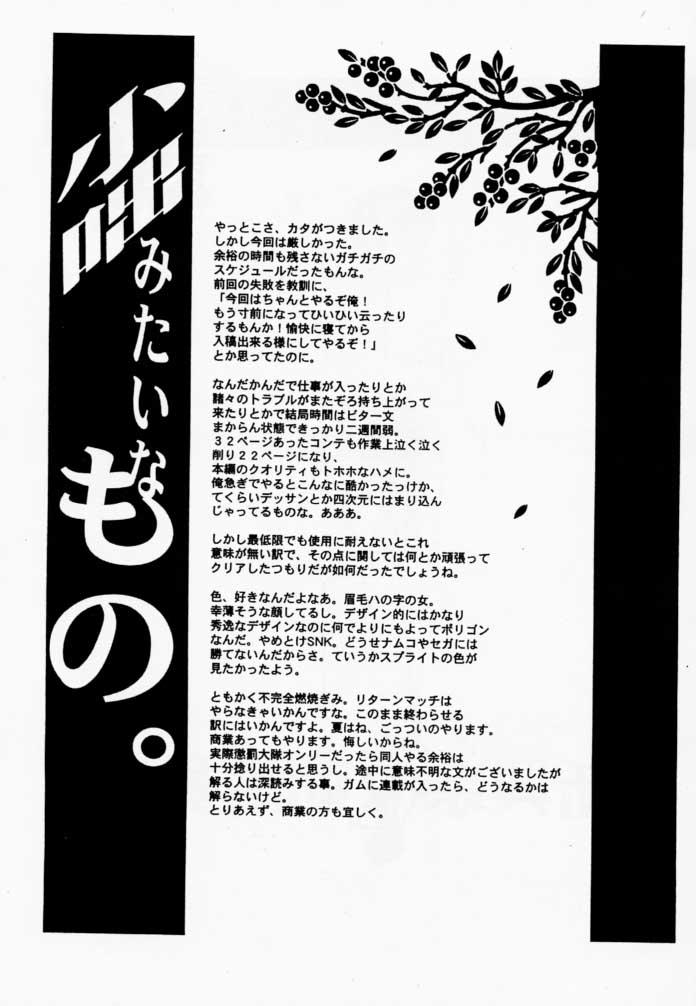 小咄みたいなもの。
やっとこさ、カタがつきました。
しかし今回は厳しかった。
余裕の時間も残さないガチガチの
スケジュールだったもんな。
前回の失敗を教訓に、
「今回はちゃんとやるぞ俺！
もう寸前になってひいひい云ったり
するもんか！愉快に寝てから
入稿出来る様にしてやるぞ！」
とか思ってたのに。
なんだかんだで仕事が入ったりとか
諸々のトラブルがまたぞろ持ち上がって
来たりとかで結局時間はビタ一文
まからん状態できっかり二週間弱。
３２ページあったコンテも作業上泣く泣く
削り２２ページになり、
本編のクオリティもトホホなハメに。
俺急ぎでやるとこんなに酷かったっけか、
てくらいデッサンとか四次元にはまり込ん
じゃってるものな。あああ。
しかし最低限でも使用に耐えないとこれ
意味が無い訳で、その点に関しては何とか頑張って
クリアしたつもりだが如何だったでしょうね。
色、好きなんだよなあ。眉毛ハの字の女。
幸薄そうな顔してるし。デザイン的にはかなり
秀逸なデザインなのに何でよりにもよってポリゴン
なんだ。やめとけSNK。どうせナムコやセガには
勝てないんだからさ。ていうかスプライトの色が
見たかったよう。
ともかく不完全燃焼ぎみ。リターンマッチは
やらなきゃいかんですな。このまま終わらせる
訳にはいかんですよ。夏はね、ごっついのやります。
商業あってもやります。悔しいからね。
実際懲罰大隊オンリーだったら同人やる余裕は
十分捻り出せると思うし。途中に意味不明な文がございましたが
解る人は深読みする事。ガムに連載が入ったら、どうなるかは
解らないけど。
とりあえず、商業の方も宜しく。